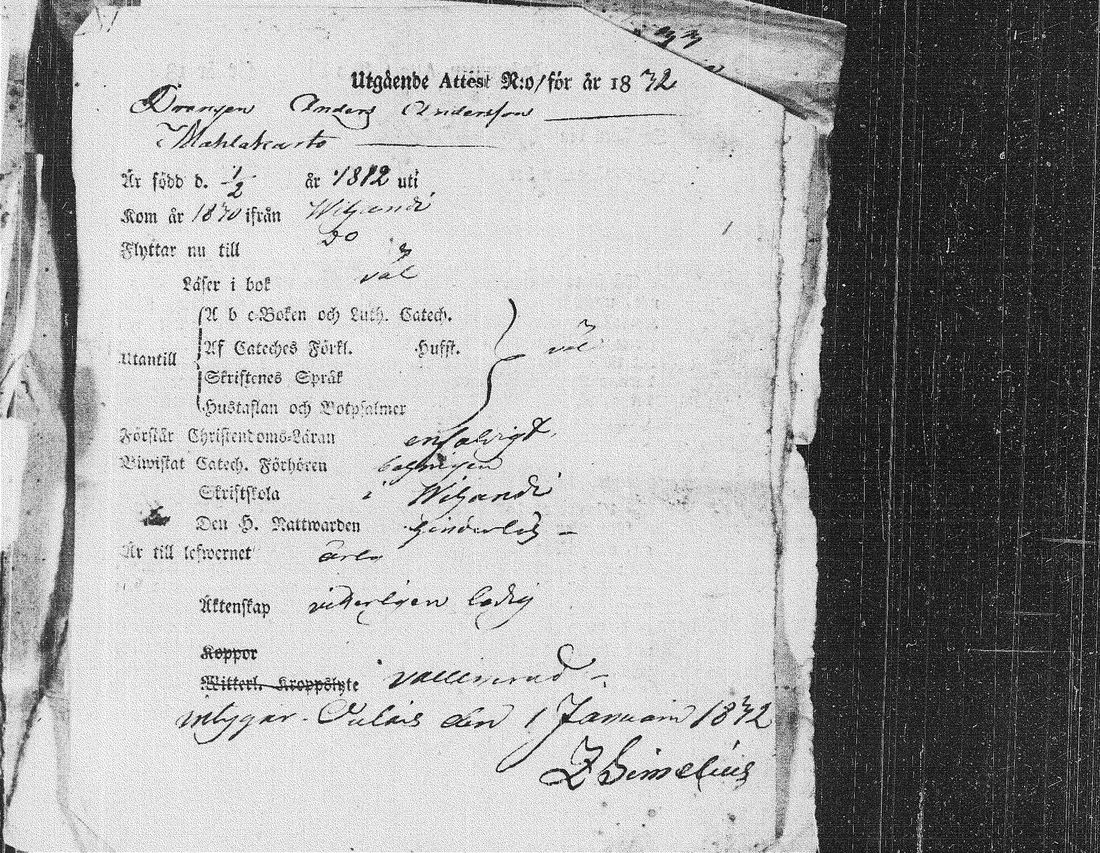 Utgående Attest N:o/för år 1872
Drängen Anders Andersson
Mahlakarto
Är född d. 1/2 år 1812 uti
Kom år 1870 ifrån Wiljandi
Flyttar nu till Do
Läser i bok väl
A b c-Boken och Luth. Catech.
Utantill Af Cateches Förkl. Hufst. väl
Skriftenes Språk
Hustaflan och Botpsalmer
Förstår Christendoms-Läran enfaldigt,
Biwistat Catech. Förhören
Skriftskola i Wiljandi
Den H. Nattwarden
Är till lefwernet ärlig
Äktenskap ledig
Koppor
Witterl. Kroppslyte vaccinerad
intygar Oulais den 1 Januarii 1872